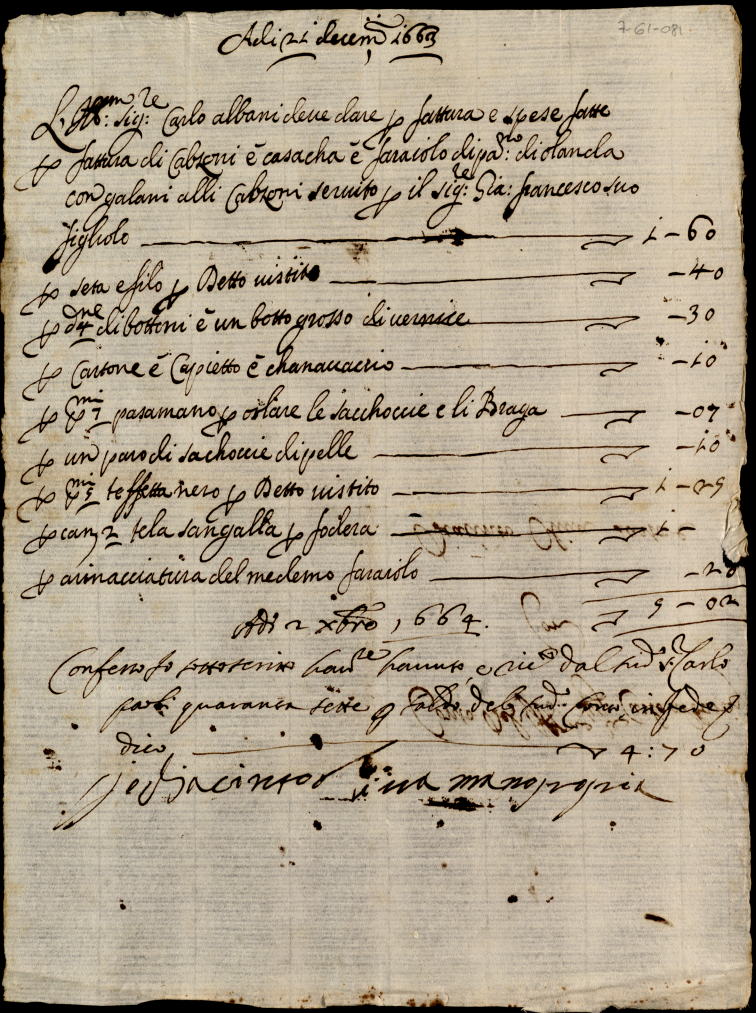 7-61-081.
Adi 21 decem 1663
L Sig: Carlo albani deve dare p fattura e spese fatte
p fattura di Calzoni è casacha è faraiolo di pa: di olanda
con galani alli Calzoni servito p il sig: Gia: francesco suo
figliolo 1-60
p seta e filo p Detto vistito -40
p dne 4 di bottoni è un botto grosso di vernice -30
p Cartone è Capietto è chanavaccio -10
p pmi 7 pasamano p orlare le sacchoccie e li Braga -07
p un paro di sachoccie di pelle -10
p pmi 5 teffetta nero p Detto vistito 1-25
p can 2 tela sangalla p fodera 1-
p arinacciatura del medemo faraiolo -20
5-02
Adi 2 xbre 1664.
Confesso Io sottoscritto haver havuto, e dal Carlo
paoli quaranta sette p saldo del sud conto in fede
dico 4:70
Io Giacinto mano propria